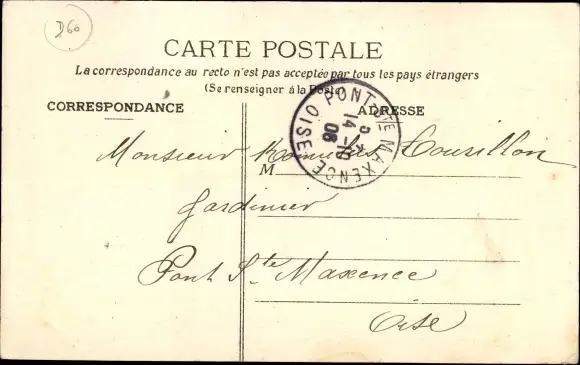 D60
CARTE POSTALE
La correspondance au recto n'est pas acceptée par tous les pays étrangers
(Se renseigner à la Poste)
CORRESPONDANCE
ADRESSE
PONT-STE-MAXENCE
OISE
14-10
08
Monsieur Tourillon
M
Jardinier
Pont Ste Maxence
Oise